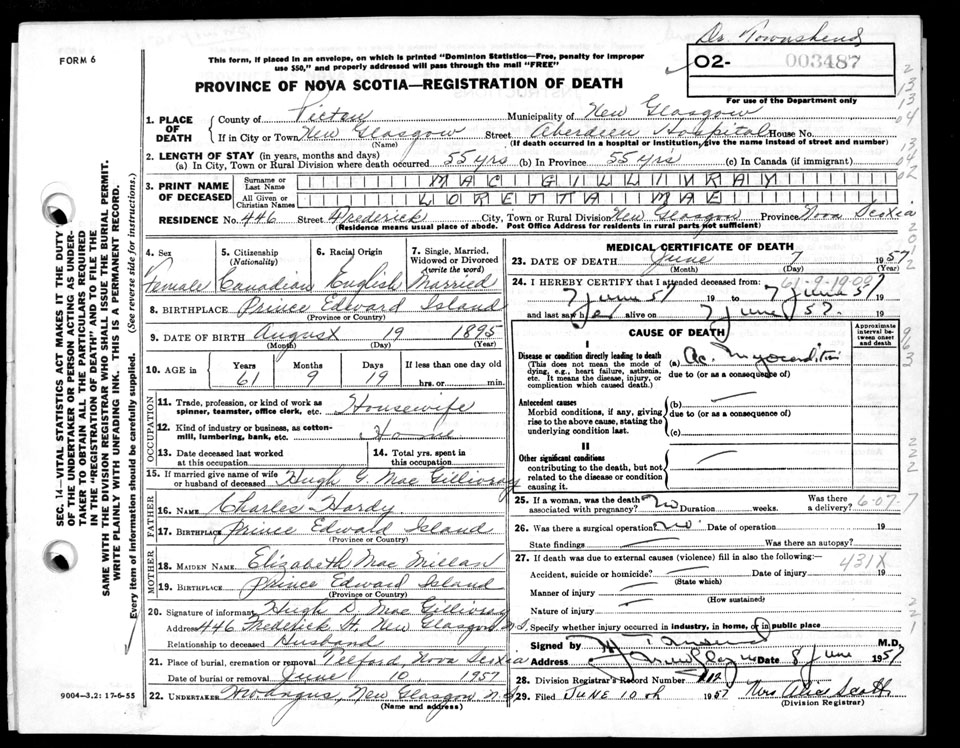 Dr. Townshend
FORM 6
This form, if placed in an envelope, on which is printed "Dominion Statistics—Free, penalty for improper
use $50," and properly addressed will pass through the mail "FREE"
O2- 003487
PROVINCE OF NOVA SCOTIA—REGISTRATION OF DEATH
For use of the Department only
1. PLACE OF DEATH
County of Pictou Municipality of New Glasgow
If in City or Town New Glasgow Street Aberdeen Hospital House No.
(Name) (If death occurred in a hospital or institution, give the name instead of street and number)
2. LENGTH OF STAY (in years, months and days)
(a) In City, Town or Rural Division where death occurred 55 yrs (b) In Province 55 yrs (c) In Canada (if immigrant)
3. PRINT NAME OF DECEASED
Surname or Last Name MAC GILLIVRAY
All Given or Christian Names LORETTA MAE
RESIDENCE No. 446 Street Frederick City, Town or Rural Division New Glasgow Province Nova Scotia
(Residence means usual place of abode. Post Office Address for residents in rural parts not sufficient)
4. Sex
5. Citizenship (Nationality)
6. Racial Origin
7. Single, Married, Widowed or Divorced (write the word)
Female Canadian English Married
8. BIRTHPLACE Prince Edward Island
(Province or Country)
9. DATE OF BIRTH August 19 1895
(Month) (Day) (Year)
10. AGE in Years Months Days If less than one day old
61 9 19 hrs. or min.
OCCUPATION
11. Trade, profession, or kind of work as
spinner, teamster, office clerk, etc. Housewife
12. Kind of industry or business, as cotton-
mill, lumbering, bank, etc. Home
13. Date deceased last worked
at this occupation
14. Total yrs. spent in
this occupation
15. If married give name of wife
or husband of deceased Hugh G. Mac Gillivray
FATHER
16. NAME Charles Hardy
17. BIRTHPLACE Prince Edward Island
(Province or Country)
MOTHER
18. MAIDEN NAME Elizabeth Mac Millan
19. BIRTHPLACE Prince Edward Island
(Province or Country)
20. Signature of informant Hugh D. Mac Gillivray
Address 446 Frederick St. New Glasgow N.S.
Relationship to deceased Husband
21. Place of burial, cremation or removal Telford, Nova Scotia
Date of burial or removal June 10, 1957
22. UNDERTAKER New Glasgow N.S.
(Name and address)
MEDICAL CERTIFICATE OF DEATH
23. DATE OF DEATH June 7 1957
(Month) (Day) (Year)
61-9-19-09
24. I HEREBY CERTIFY that I attended deceased from:
7 June 57 19 to 7 June 57
and last saw her alive on 7 June 57.
CAUSE OF DEATH
Approximate interval between onset and death
I
Disease or condition directly leading to death
(This does not mean the mode of
dying, e.g., heart failure, asthenia,
etc. It means the disease, injury, or
complication which caused death.)
(a) Ac. Myocarditis
due to (or as a consequence of)
Antecedent causes
Morbid conditions, if any, giving
rise to the above cause, stating the
underlying condition last.
(b)
due to (or as a consequence of)
(c)
II
Other significant conditions
contributing to the death, but not
related to the disease or condition
causing it.
25. If a woman, was the death
associated with pregnancy? No Duration weeks. Was there a delivery?
6-07-7
26. Was there a surgical operation No Date of operation 19
State findings Was there an autopsy?
27. If death was due to external causes (violence) fill in also the following:
431X
Accident, suicide or homicide? Date of injury 19
(State which)
Manner of injury
(How sustained)
Nature of injury
Specify whether injury occurred in industry, in home, or in public place
Signed by M.D.
Address Date 8 June 1957
28. Division Registrar's Record Number
29. Filed June 10th 1957 Mrs Alice Scott
(Division Registrar)
9004—3.2: 17-6-55
SEC. 14—VITAL STATISTICS ACT MAKES IT THE DUTY
OF THE UNDERTAKER OR PERSON ACTING AS UNDER-
TAKER TO OBTAIN ALL THE PARTICULARS REQUIRED
IN THE "REGISTRATION OF DEATH" AND TO FILE THE
SAME WITH THE DIVISION REGISTRAR WHO SHALL ISSUE THE BURIAL PERMIT.
WRITE PLAINLY WITH UNFADING INK. THIS IS A PERMANENT RECORD.
Every item of information should be carefully supplied. (See reverse side for instructions.)